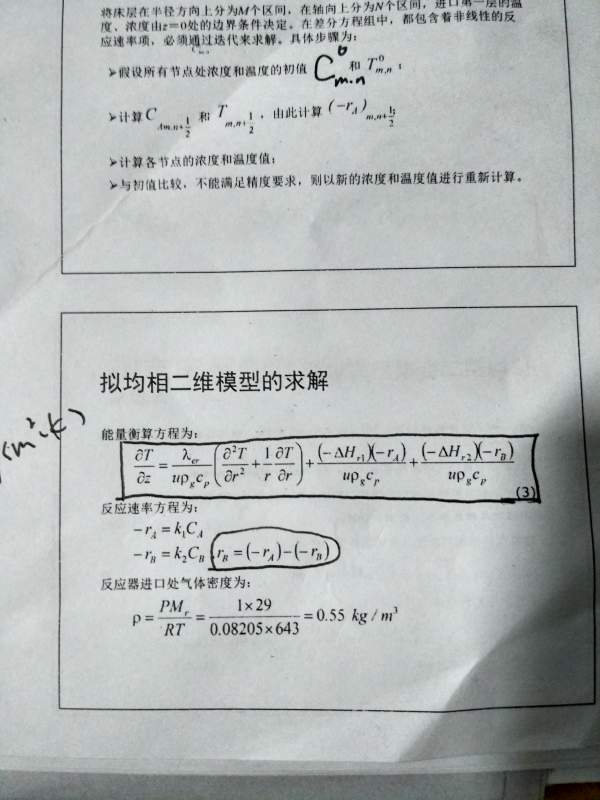 将床层在半径方向上分为M个区间，在轴向上分为N个区间，进口第一层的温
度、浓度由z=0处的边界条件决定。在差分方程组中，都包含着非线性的反
应速率项，必须通过迭代来求解。具体步骤为：
➢假设所有节点处浓度和温度的初值 C⁰m.n 和 T⁰m,n；
➢计算 C_{Am,n+1/2} 和 T_{m,n+1/2}，由此计算 (-r_A)_{m,n+1/2}；
➢计算各节点的浓度和温度值；
➢与初值比较，不能满足精度要求，则以新的浓度和温度值进行重新计算。
拟均相二维模型的求解
(m²·k)
能量衡算方程为：
∂T/∂z = λ_er/(uρ_g c_p) (∂²T/∂r² + 1/r ∂T/∂r) + (-ΔH_r1)(-r_A)/(uρ_g c_p) + (-ΔH_r2)(-r_B)/(uρ_g c_p)
(3)
反应速率方程为：
-r_A = k₁C_A
-r_B = k₂C_B r_B = (-r_A)-(-r_B)
反应器进口处气体密度为：
ρ = PM_r/RT = 1×29/0.08205×643 = 0.55 kg/m³